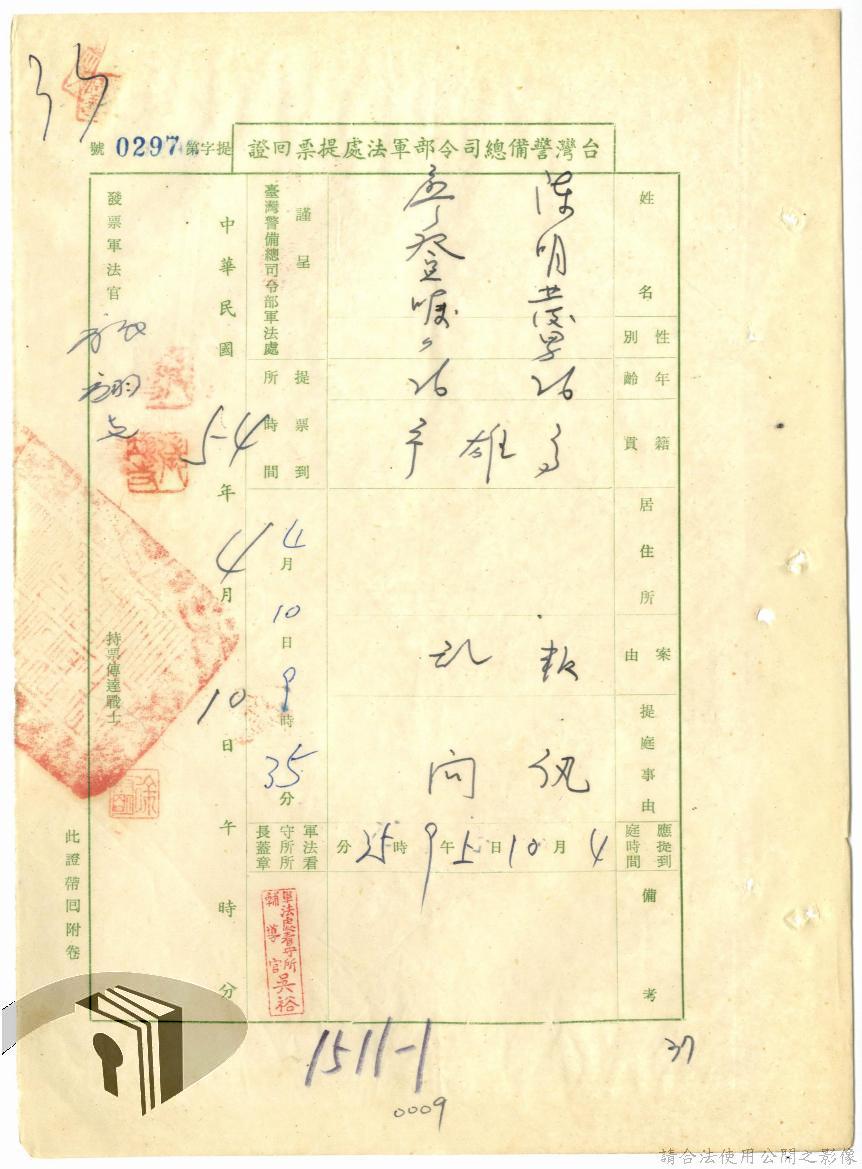 台灣警備總司令部軍法處提票回證
提字第 0297 號
姓名
陳明發
廖登囑
性別
男
〃
年齡
26
26
籍貫
高雄市
居住所
案由
叛乱
提庭事由
訊问
應提到庭時間
4月10日上午9時25分
備考
謹呈
臺灣警備總司令部軍法處
提票到所時間
4月10日9時35分
軍法看守所所長蓋章
軍法處看守所
輔導官 吳裕
中華民國54年4月10日午時分
發票軍法官
持票傳達戰士
徐
此證帶回附卷
1511-1
37
0009
請合法使用公開之影像